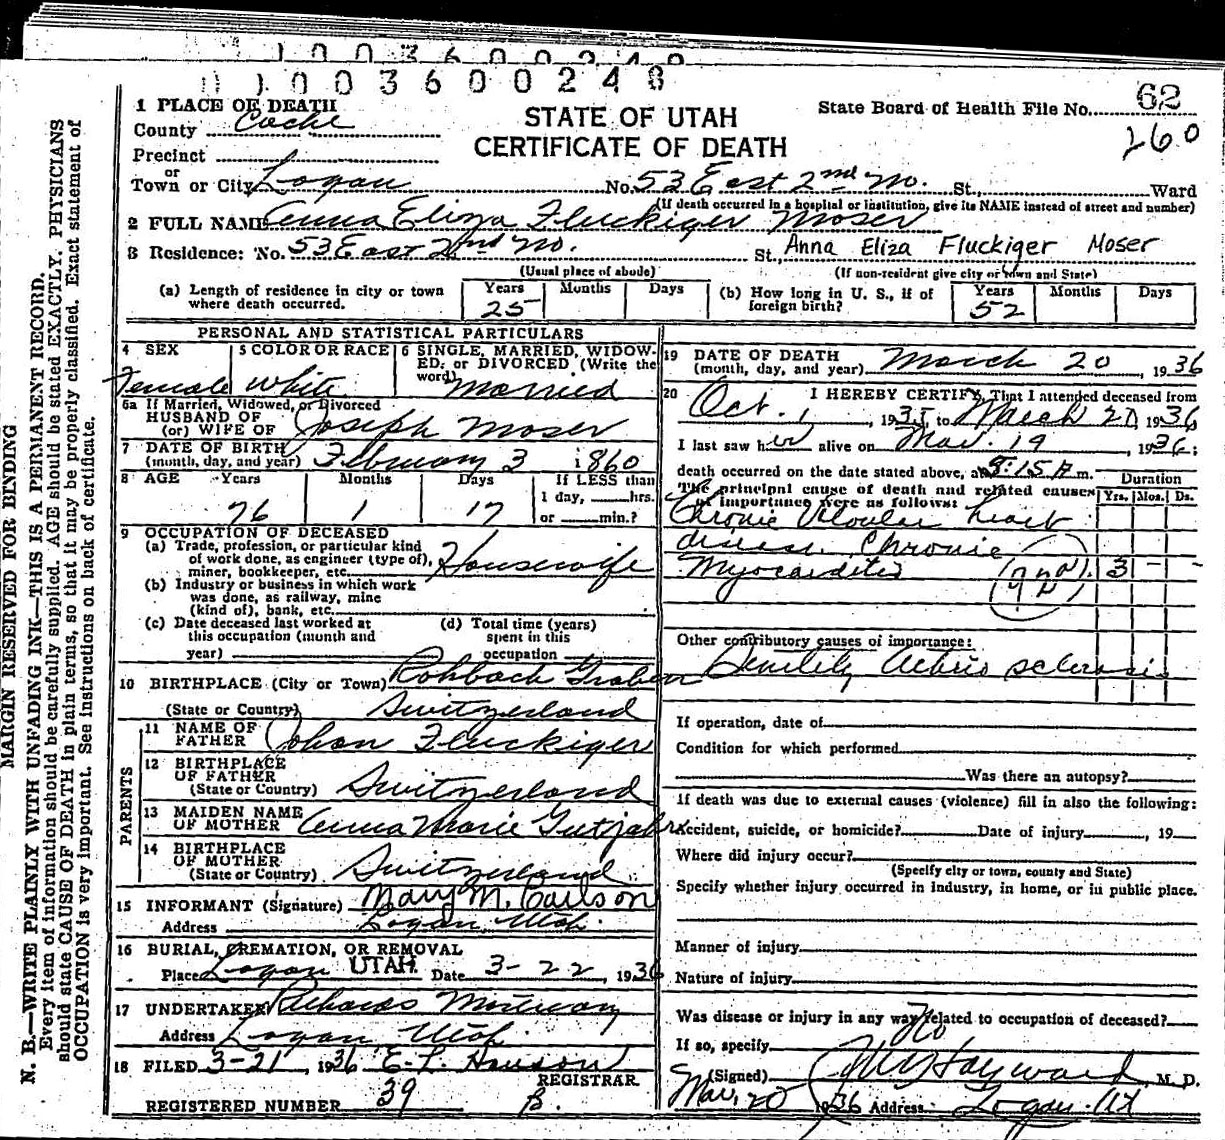 1003600240
1003600248
1 PLACE OF DEATH
County Cache
STATE OF UTAH
CERTIFICATE OF DEATH
State Board of Health File No. 62
260
Precinct
or
Town or City Logan No. 53 East 2nd No. St. Ward
(If death occurred in a hospital or institution, give its NAME instead of street and number)
2 FULL NAME Anna Eliza Fluckiger Moser
3 Residence: No. 53 East 2nd No. St., Anna Eliza Fluckiger Moser
(Usual place of abode) (If non-resident give city or town and State)
(a) Length of residence in city or town where death occurred. Years 25 Months Days
(b) How long in U. S., if of foreign birth? Years 52 Months Days
PERSONAL AND STATISTICAL PARTICULARS
4 SEX Female
5 COLOR OR RACE White
6 SINGLE, MARRIED, WIDOWED, or DIVORCED (Write the word) Married
6a If Married, Widowed, or Divorced
HUSBAND OF
(or) WIFE OF Joseph Moser
7 DATE OF BIRTH
(month, day, and year) February 3 1860
8 AGE Years 76 Months 1 Days 17 If LESS than 1 day, hrs. or min.?
9 OCCUPATION OF DECEASED
(a) Trade, profession, or particular kind
of work done, as engineer (type of),
miner, bookkeeper, etc. Housewife
(b) Industry or business in which work
was done, as railway, mine
(kind of), bank, etc.
(c) Date deceased last worked at
this occupation (month and
year)
(d) Total time (years)
spent in this
occupation
10 BIRTHPLACE (City or Town) Rohbach Graben
(State or Country) Switzerland
PARENTS
11 NAME OF
FATHER Johan Fluckiger
12 BIRTHPLACE
OF FATHER
(State or Country) Switzerland
13 MAIDEN NAME
OF MOTHER Anna Marie Gutjahr
14 BIRTHPLACE
OF MOTHER
(State or Country) Switzerland
15 INFORMANT (Signature) Mary M. Carlson
Address Logan, Utah.
16 BURIAL, CREMATION, OR REMOVAL
Place Logan UTAH. Date 3-22, 1936
17 UNDERTAKER Richards Mortuary
Address Logan Utah.
18 FILED 3-21, 1936 E. L. Hanson
REGISTRAR
REGISTERED NUMBER 39 B.
19 DATE OF DEATH
(month, day, and year) March 20, 1936
20 I HEREBY CERTIFY, That I attended deceased from
Oct. 1, 1935, to March 20 1936
I last saw her alive on Mar. 19, 1936;
death occurred on the date stated above, at 8:15 P m.
The principal cause of death and related causes
of importance were as follows:
Duration
Yrs. Mos. Ds.
Chronic Valvular heart
disease. Chronic
Myocarditis 3 - -
Other contributory causes of importance:
Senility Arterio sclerosis
If operation, date of
Condition for which performed
Was there an autopsy?
If death was due to external causes (violence) fill in also the following:
Accident, suicide, or homicide? Date of injury, 19
Where did injury occur?
(Specify city or town, county and State)
Specify whether injury occurred in industry, in home, or in public place.
Manner of injury
Nature of injury
Was disease or injury in any way related to occupation of deceased?
No
If so, specify
(Signed) Hayward, M. D.
Mar. 20 1936 Address Logan. Ut
MARGIN RESERVED FOR BINDING
N. B.—WRITE PLAINLY WITH UNFADING INK—THIS IS A PERMANENT RECORD.
Every item of information should be carefully supplied. AGE should be stated EXACTLY. PHYSICIANS
should state CAUSE OF DEATH in plain terms, so that it may be properly classified. Exact statement of
OCCUPATION is very important. See instructions on back of certificate.